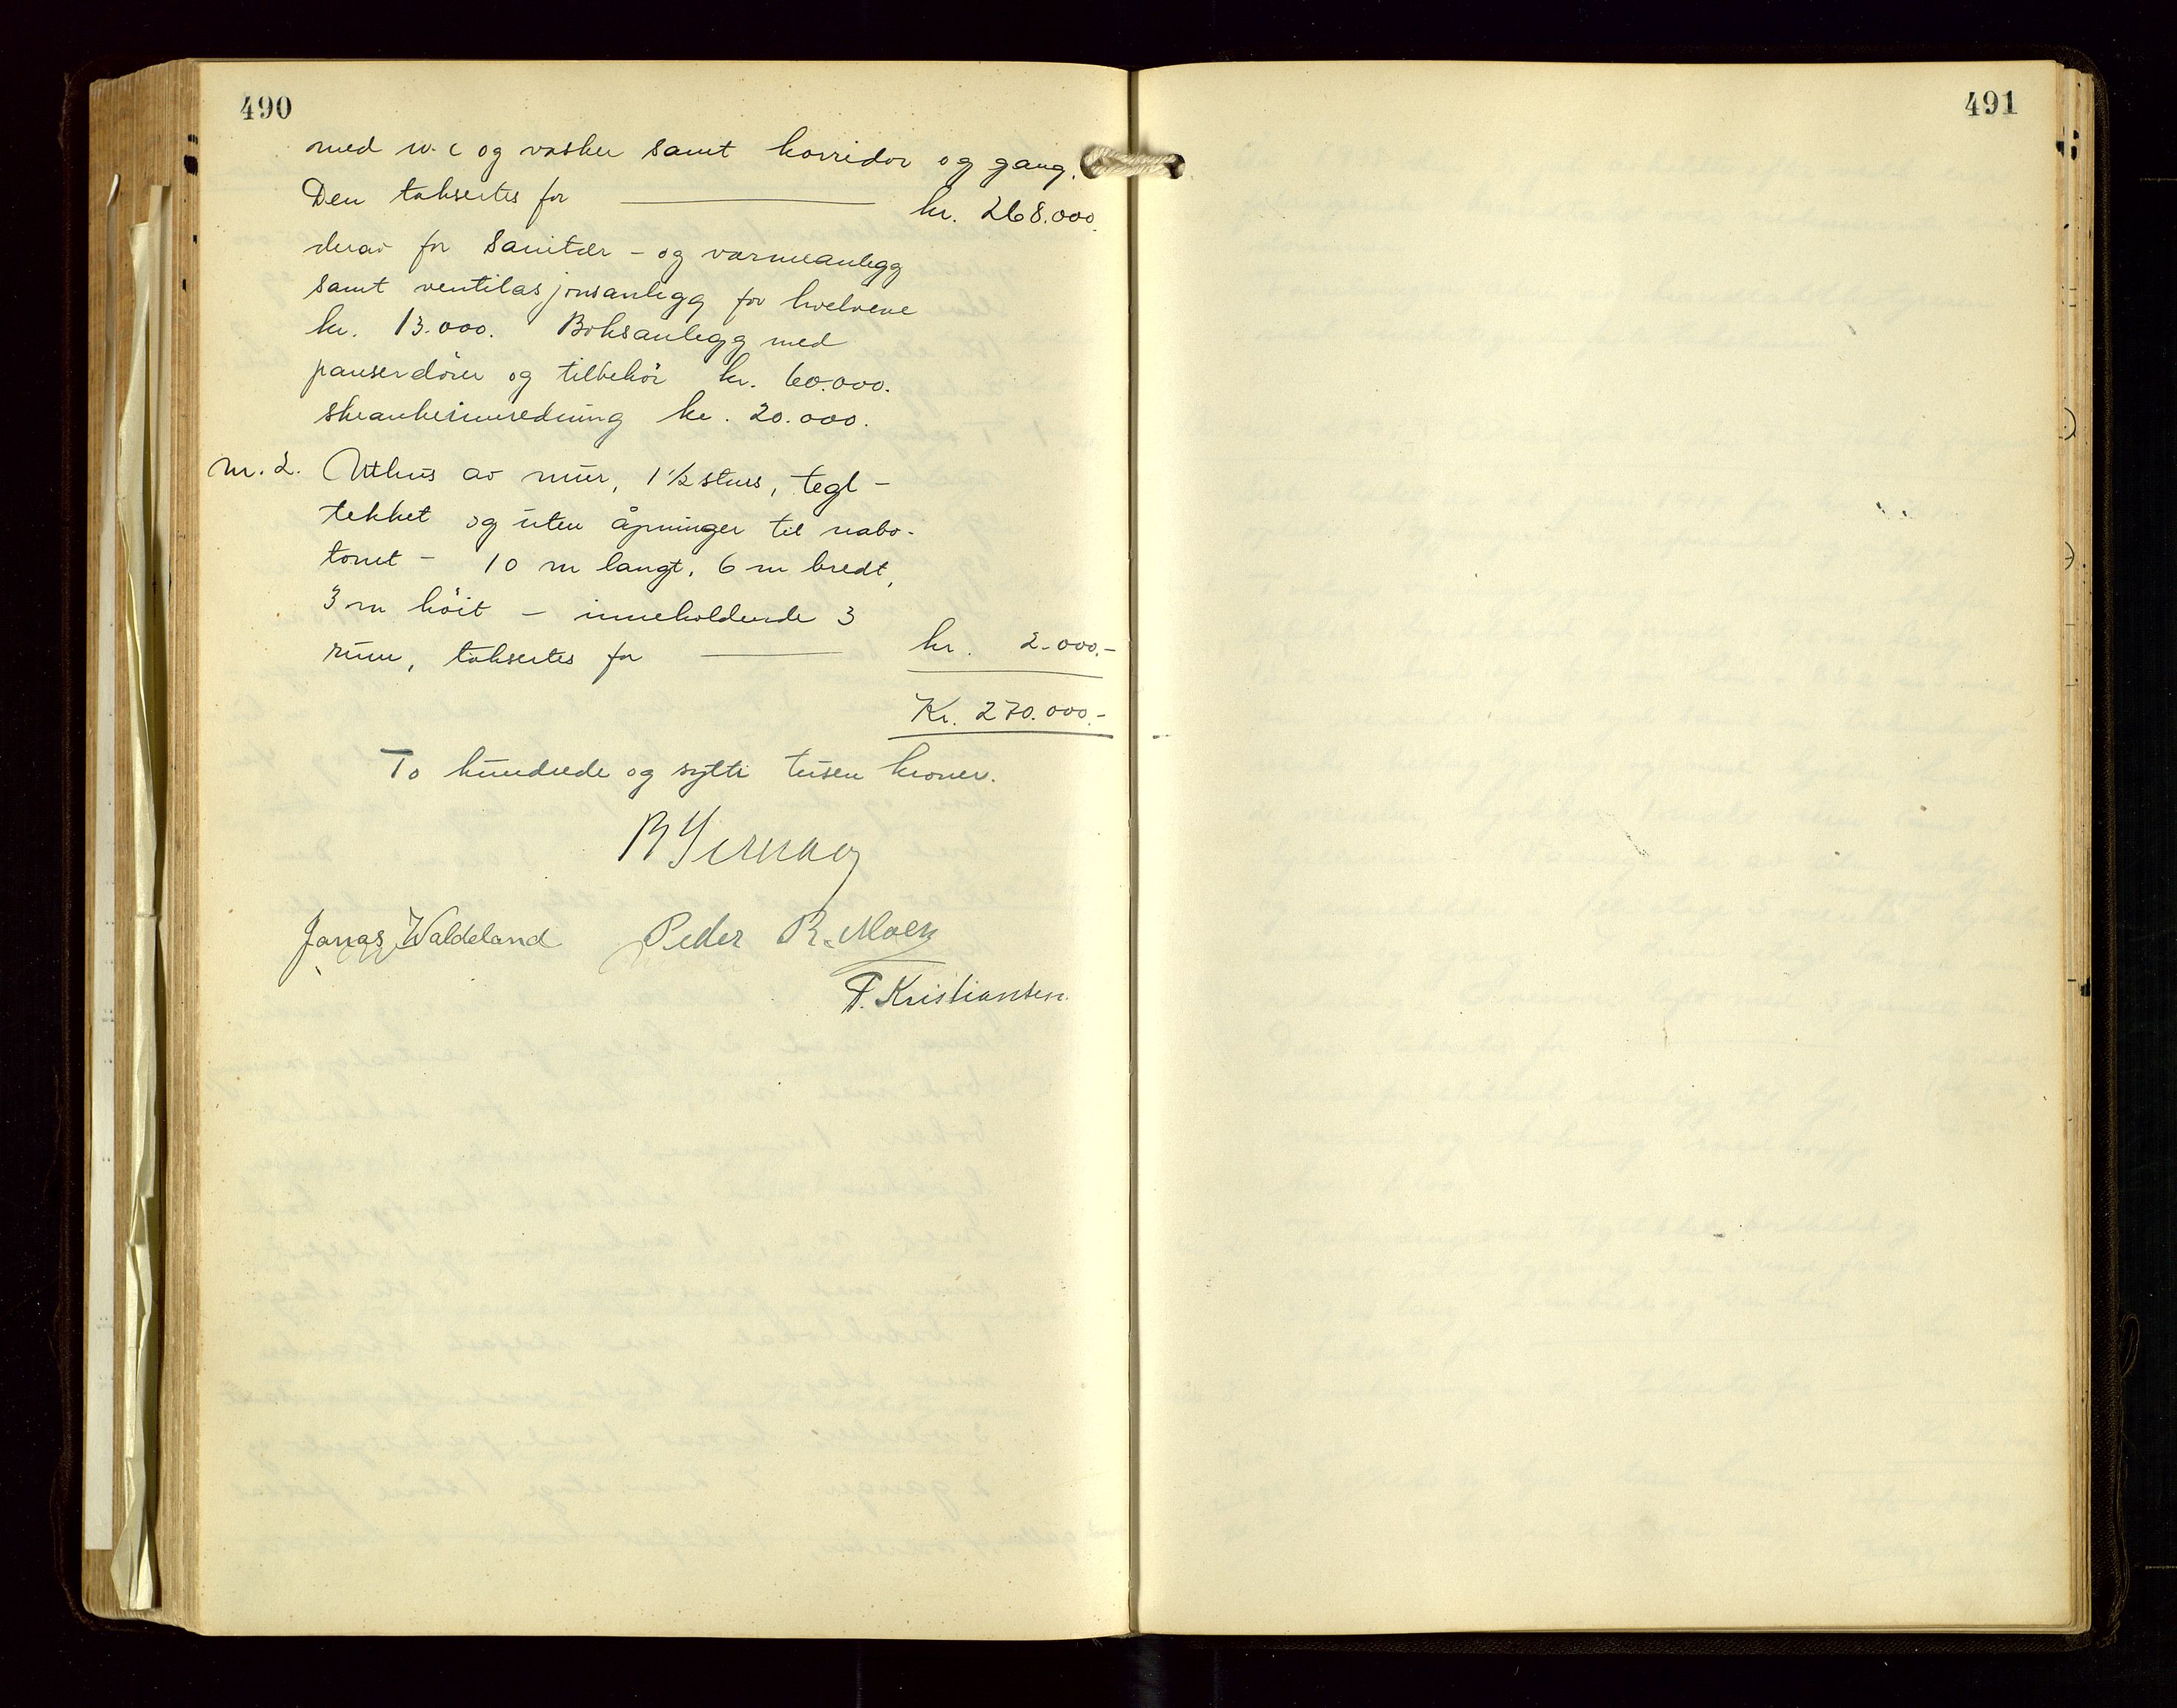 490
med w.c og vasker samt korridor og gang.
Den taksertes for kr. 268.000.
derav for Sanitær- og varmeanlegg
samt ventilasjonsanlegg for hvelvene
kr. 13.000. Boksanlegg med
panserdører og tilbehör kr. 60.000.
skrankeinnredning kr. 20.000.
nr. 2. Uthus av mur, 1½ stens, tegl-
tekket og uten åpninger til nabo-
tomt - 10 m langt, 6 m bredt,
3 m höit - inneholdende 3
rum, taksertes for kr. 2.000.-
Kr. 270.000.-
To hundrede og sytti tusen kroner.
Jonas Waldeland Peder R. Moen
T. Kristiansen.
491